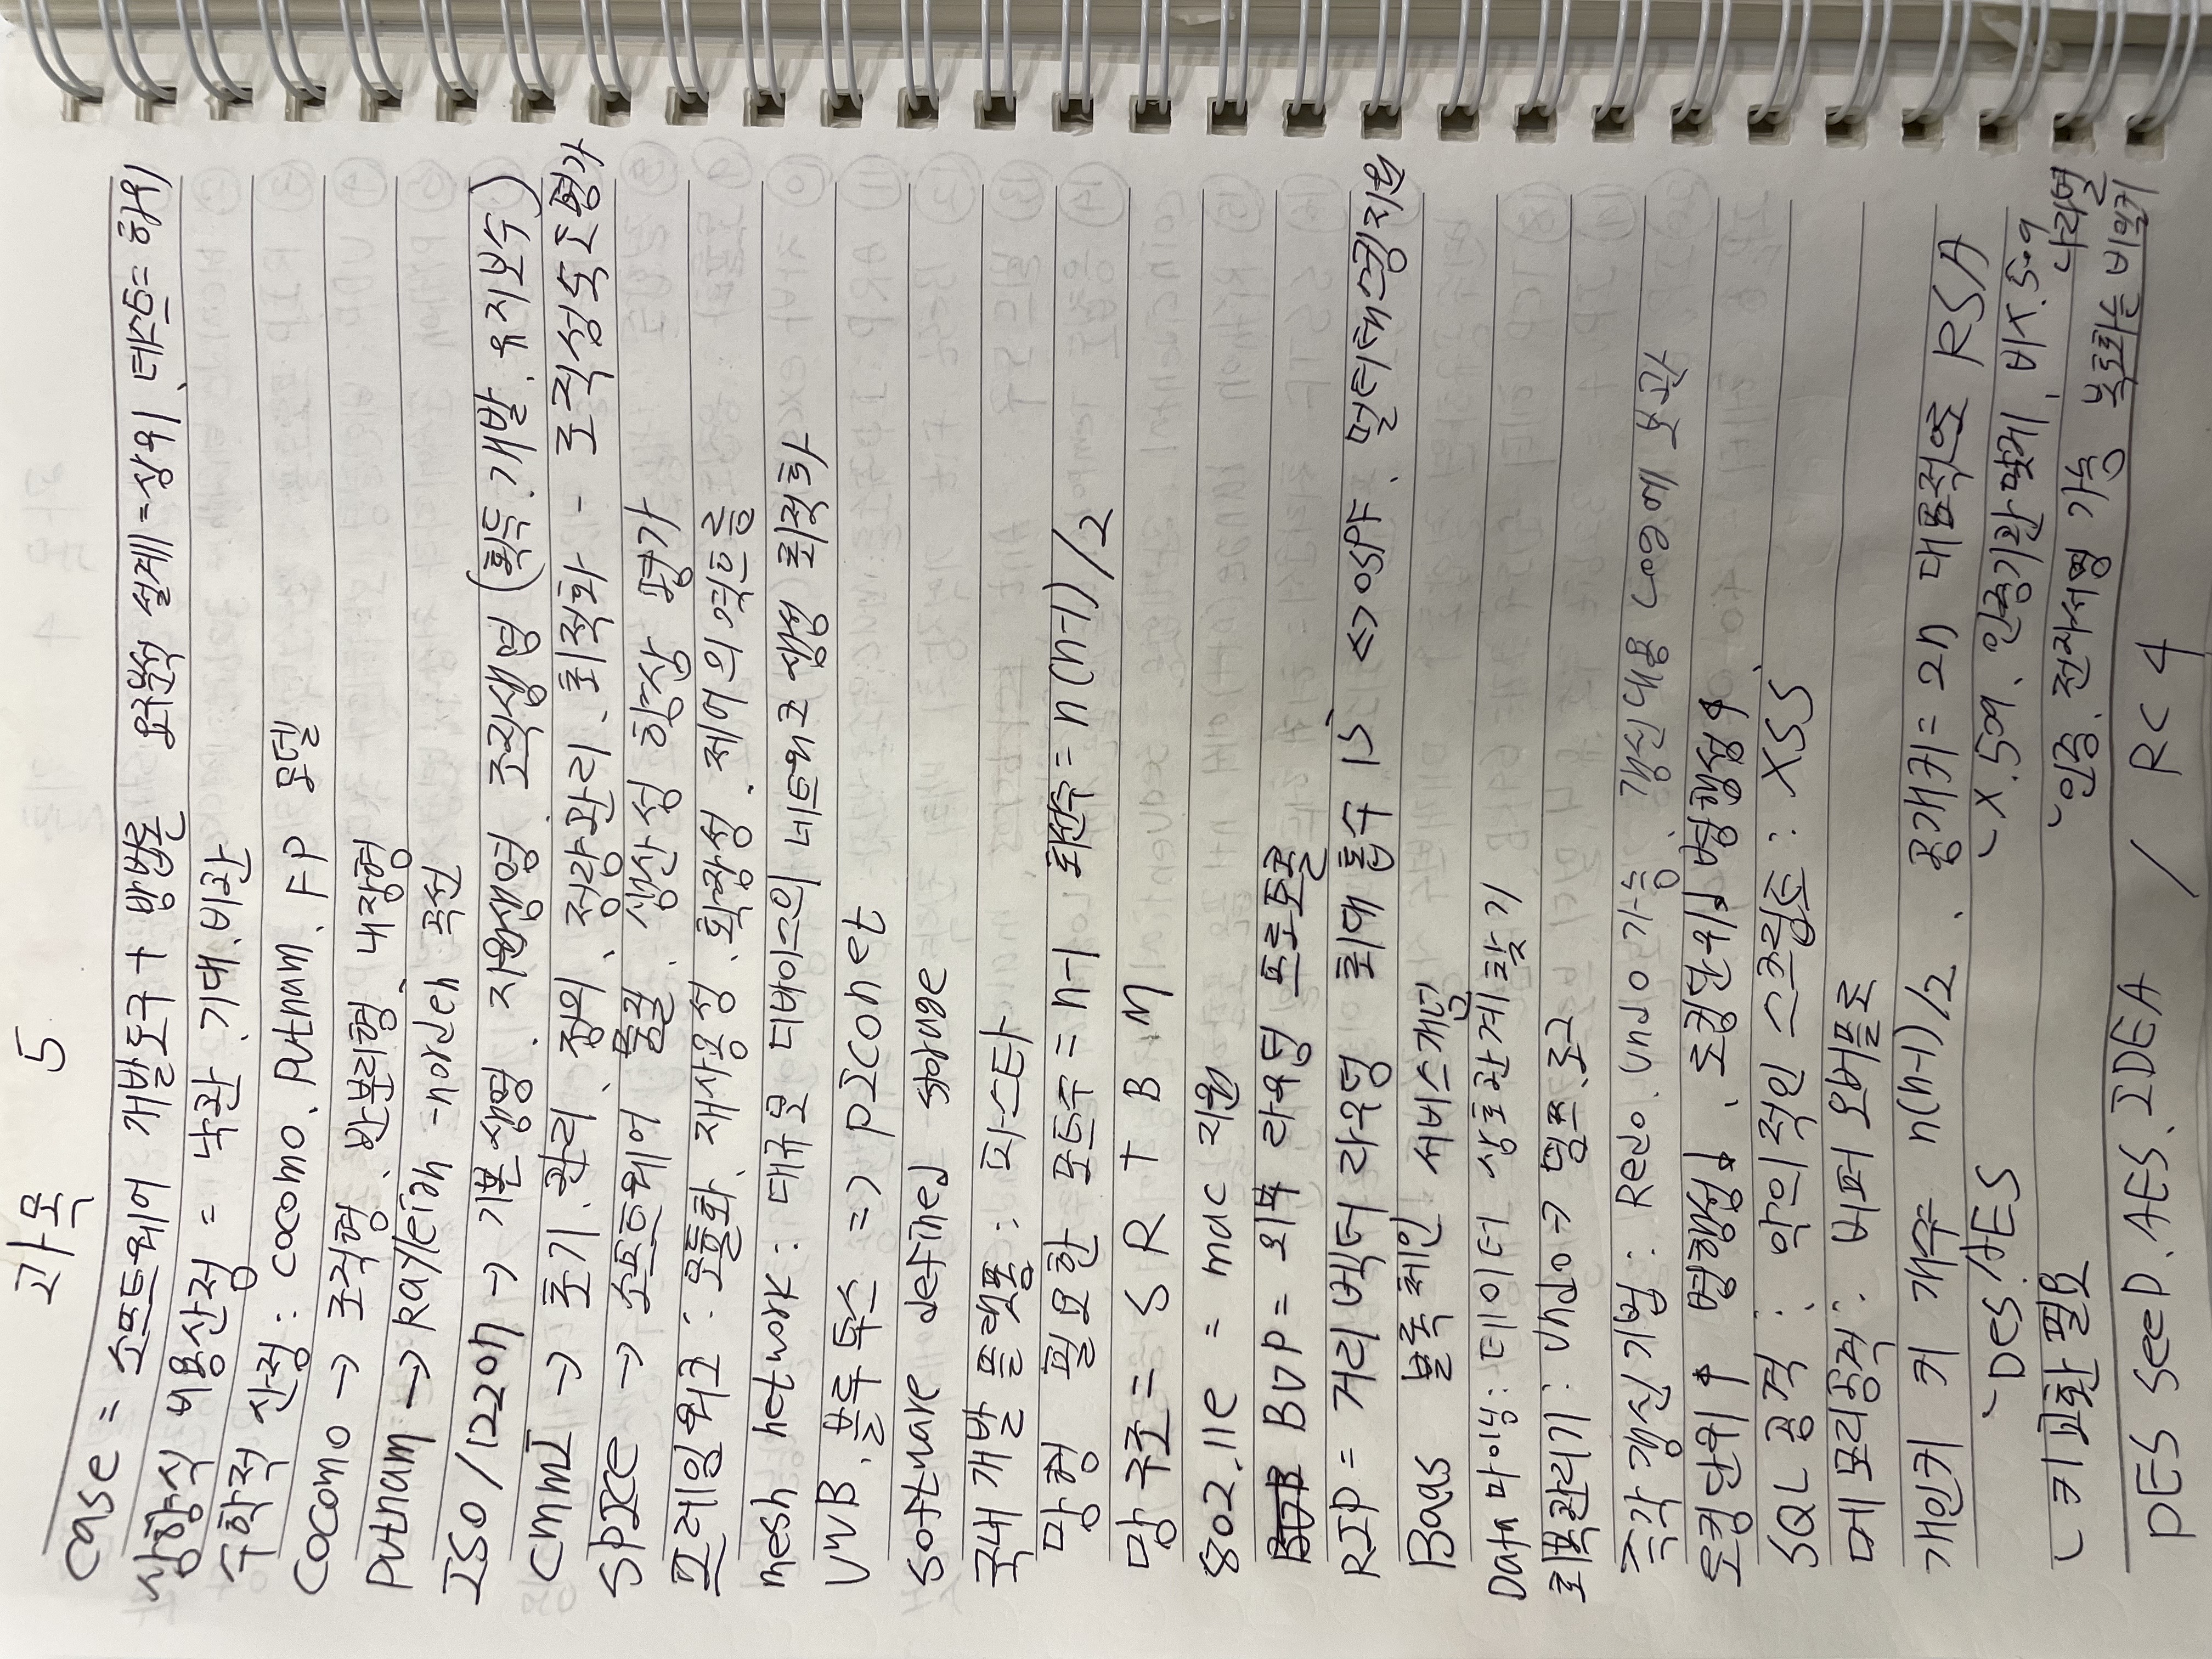 과목 5
case = 소프트웨어 개발도구 + 방법론 요구분석 설계=상위 테스트=하위
상향식 비용산정 = 낙관.기대.비관
수학적 산정 : cocomo. Putnam. FP 모델
cocomo → 조직형. 반분리형. 내장형
Putnam → Rayleigh -norden 곡선
ISO/12207 → 기본생명. 지원생명 조직생명 (획득.개발.유지보수)
CMMI → 초기.관리.정의.정량관리.최적화 - 조직성숙도평가
SPICE → 소프트웨어 품질. 생산성 향상 평가
프레임워크 : 모듈화.재사용성.확장성.제어의역흐름
mesh network : 대규모 디바이스의 네트워크 생성 최적화
UWB. 블루투스 => PIConet
software defined storage
국내 개발 플랫폼 : 파스타
망형 필요한 포트수 = n-1 회선수 = n(n-1)/2
망 구조 = S R T B M
802.11e = mac 지원
BGP = 외부 라우팅 프로토콜
RIP = 거리벡터 라우팅 최대 홉수 15 <> OSPF. 멀티태스킹지원
Baas 블록체인 서비스개념
Data마이닝: 데이터 상호관계 찾기
회복관리기 : Undo → 덤프.로그
즉각갱신기법 : Redo.Undo가능. 갱신내용 Log에 보관
로킹단위↑ 병행성↓. 로킹단위↓ 병행성↑
SQL 공격 : 악의적인 스크립트 : XSS
메모리공격 : 버퍼 오버플로
개인키 키 개수 n(n-1)/2 . 공개키 = 2n 대표적으로 RSA
`Des/AES `X.509. 인증기관 발계. 비X.509 나라별
ㄴ키교환 필요 `인증.전자서명 가능 복호화는 비밀키
DES SeeD.AES.IDEA / RC4